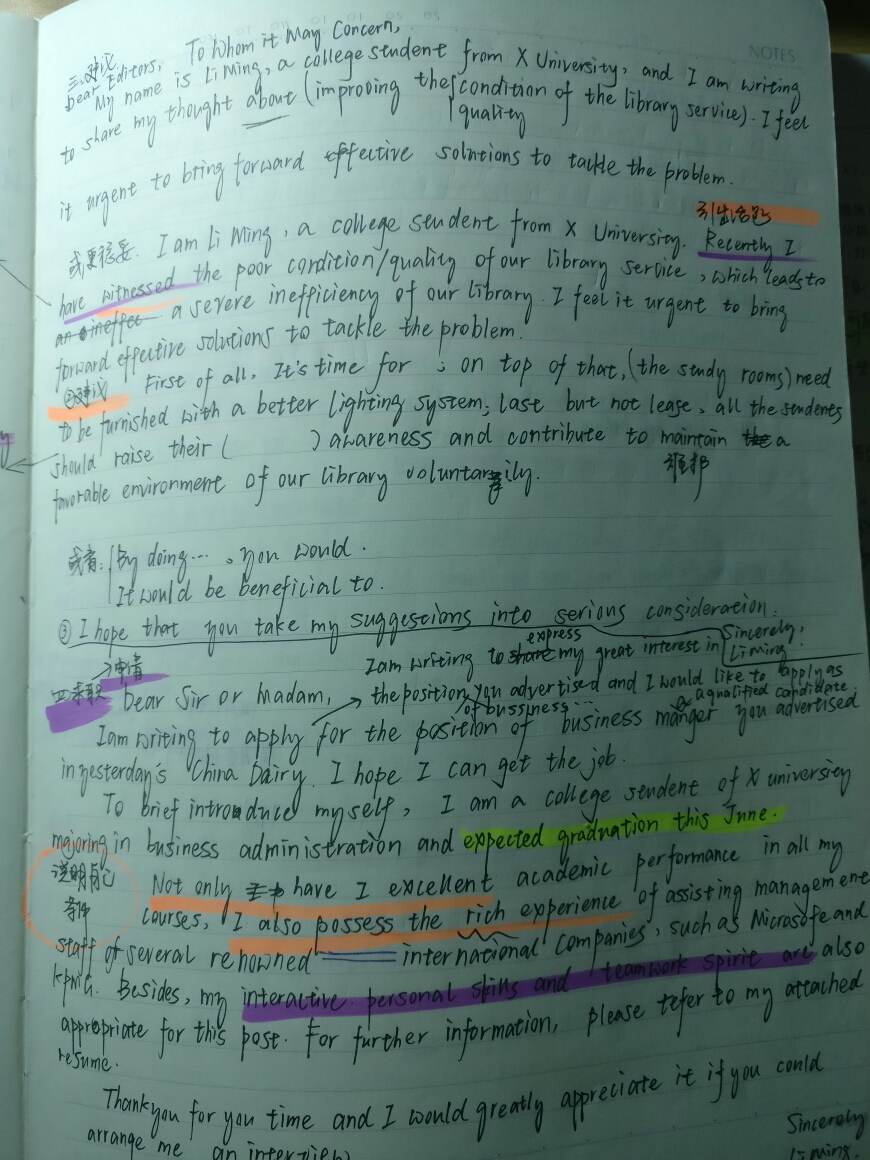 NOTES
三.建议
Dear Editors, To Whom it May Concern,
My name is Li Ming, a college student from X University, and I am writing
to share my thought about (improving the condition of the library service). I feel
quality
it urgent to bring forward effective solutions to tackle the problem.
引出话题
或更稳妥. I am Li Ming, a college student from X University. Recently I
have witnessed the poor condition/quality of our library service, which leads to
an ineffet a severe inefficiency of our library. I feel it urgent to bring
forward effective solutions to tackle the problem.
②建议 First of all, It's time for ; on top of that, (the study rooms) need
to be furnished with a better lighting system; last but not lease, all the students
should raise their ( ) awareness and contribute to maintain the a
维护
favorable environment of our library voluntarily.
或者: By doing... , you would.
It would be beneficial to.
③ I hope that you take my suggestions into serious consideration.
Sincerely,
Li Ming
→申请
I am writing to share express my great interest in
四求职 Dear Sir or Madam, the position you advertised and I would like to apply as
of bussiness... a qualified candidate
I am writing to apply for the position of business manger you advertised
in yesterday's China Dairy. I hope I can get the job.
To brief introduce myself, I am a college student of X university
majoring in business administration and expected graduation this June.
说明自己
条件
Not only have I excellent academic performance in all my
courses, I also possess the rich experience of assisting management
staff of several renowned international companies, such as Microsofe and
kpmG. Besides, my interactive personal skills and teamwork spirit are also
appropriate for this post. For further information, please refer to my attached
resume.
Thank you for you time and I would greatly appreciate it if you could
arrange me an interview
Sincerely
Li Ming.